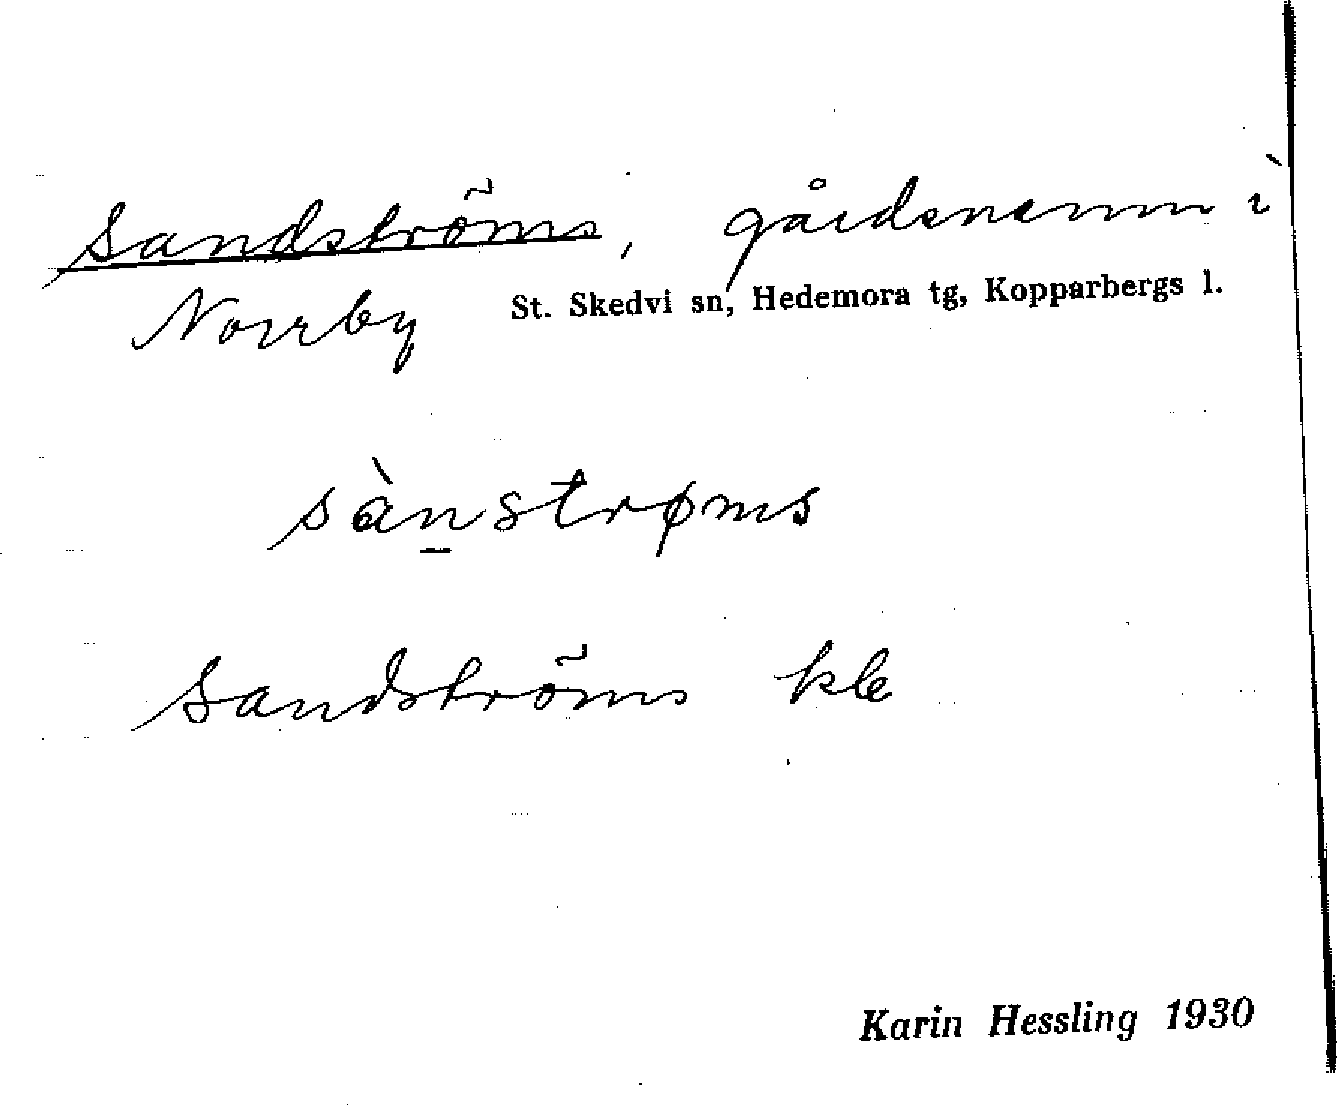 Sandströms, gårdsnamn i
Norrby St. Skedvi sn, Hedemora tg, Kopparbergs l.
sànstrøms
Sandströms kle
Karin Hessling 1930